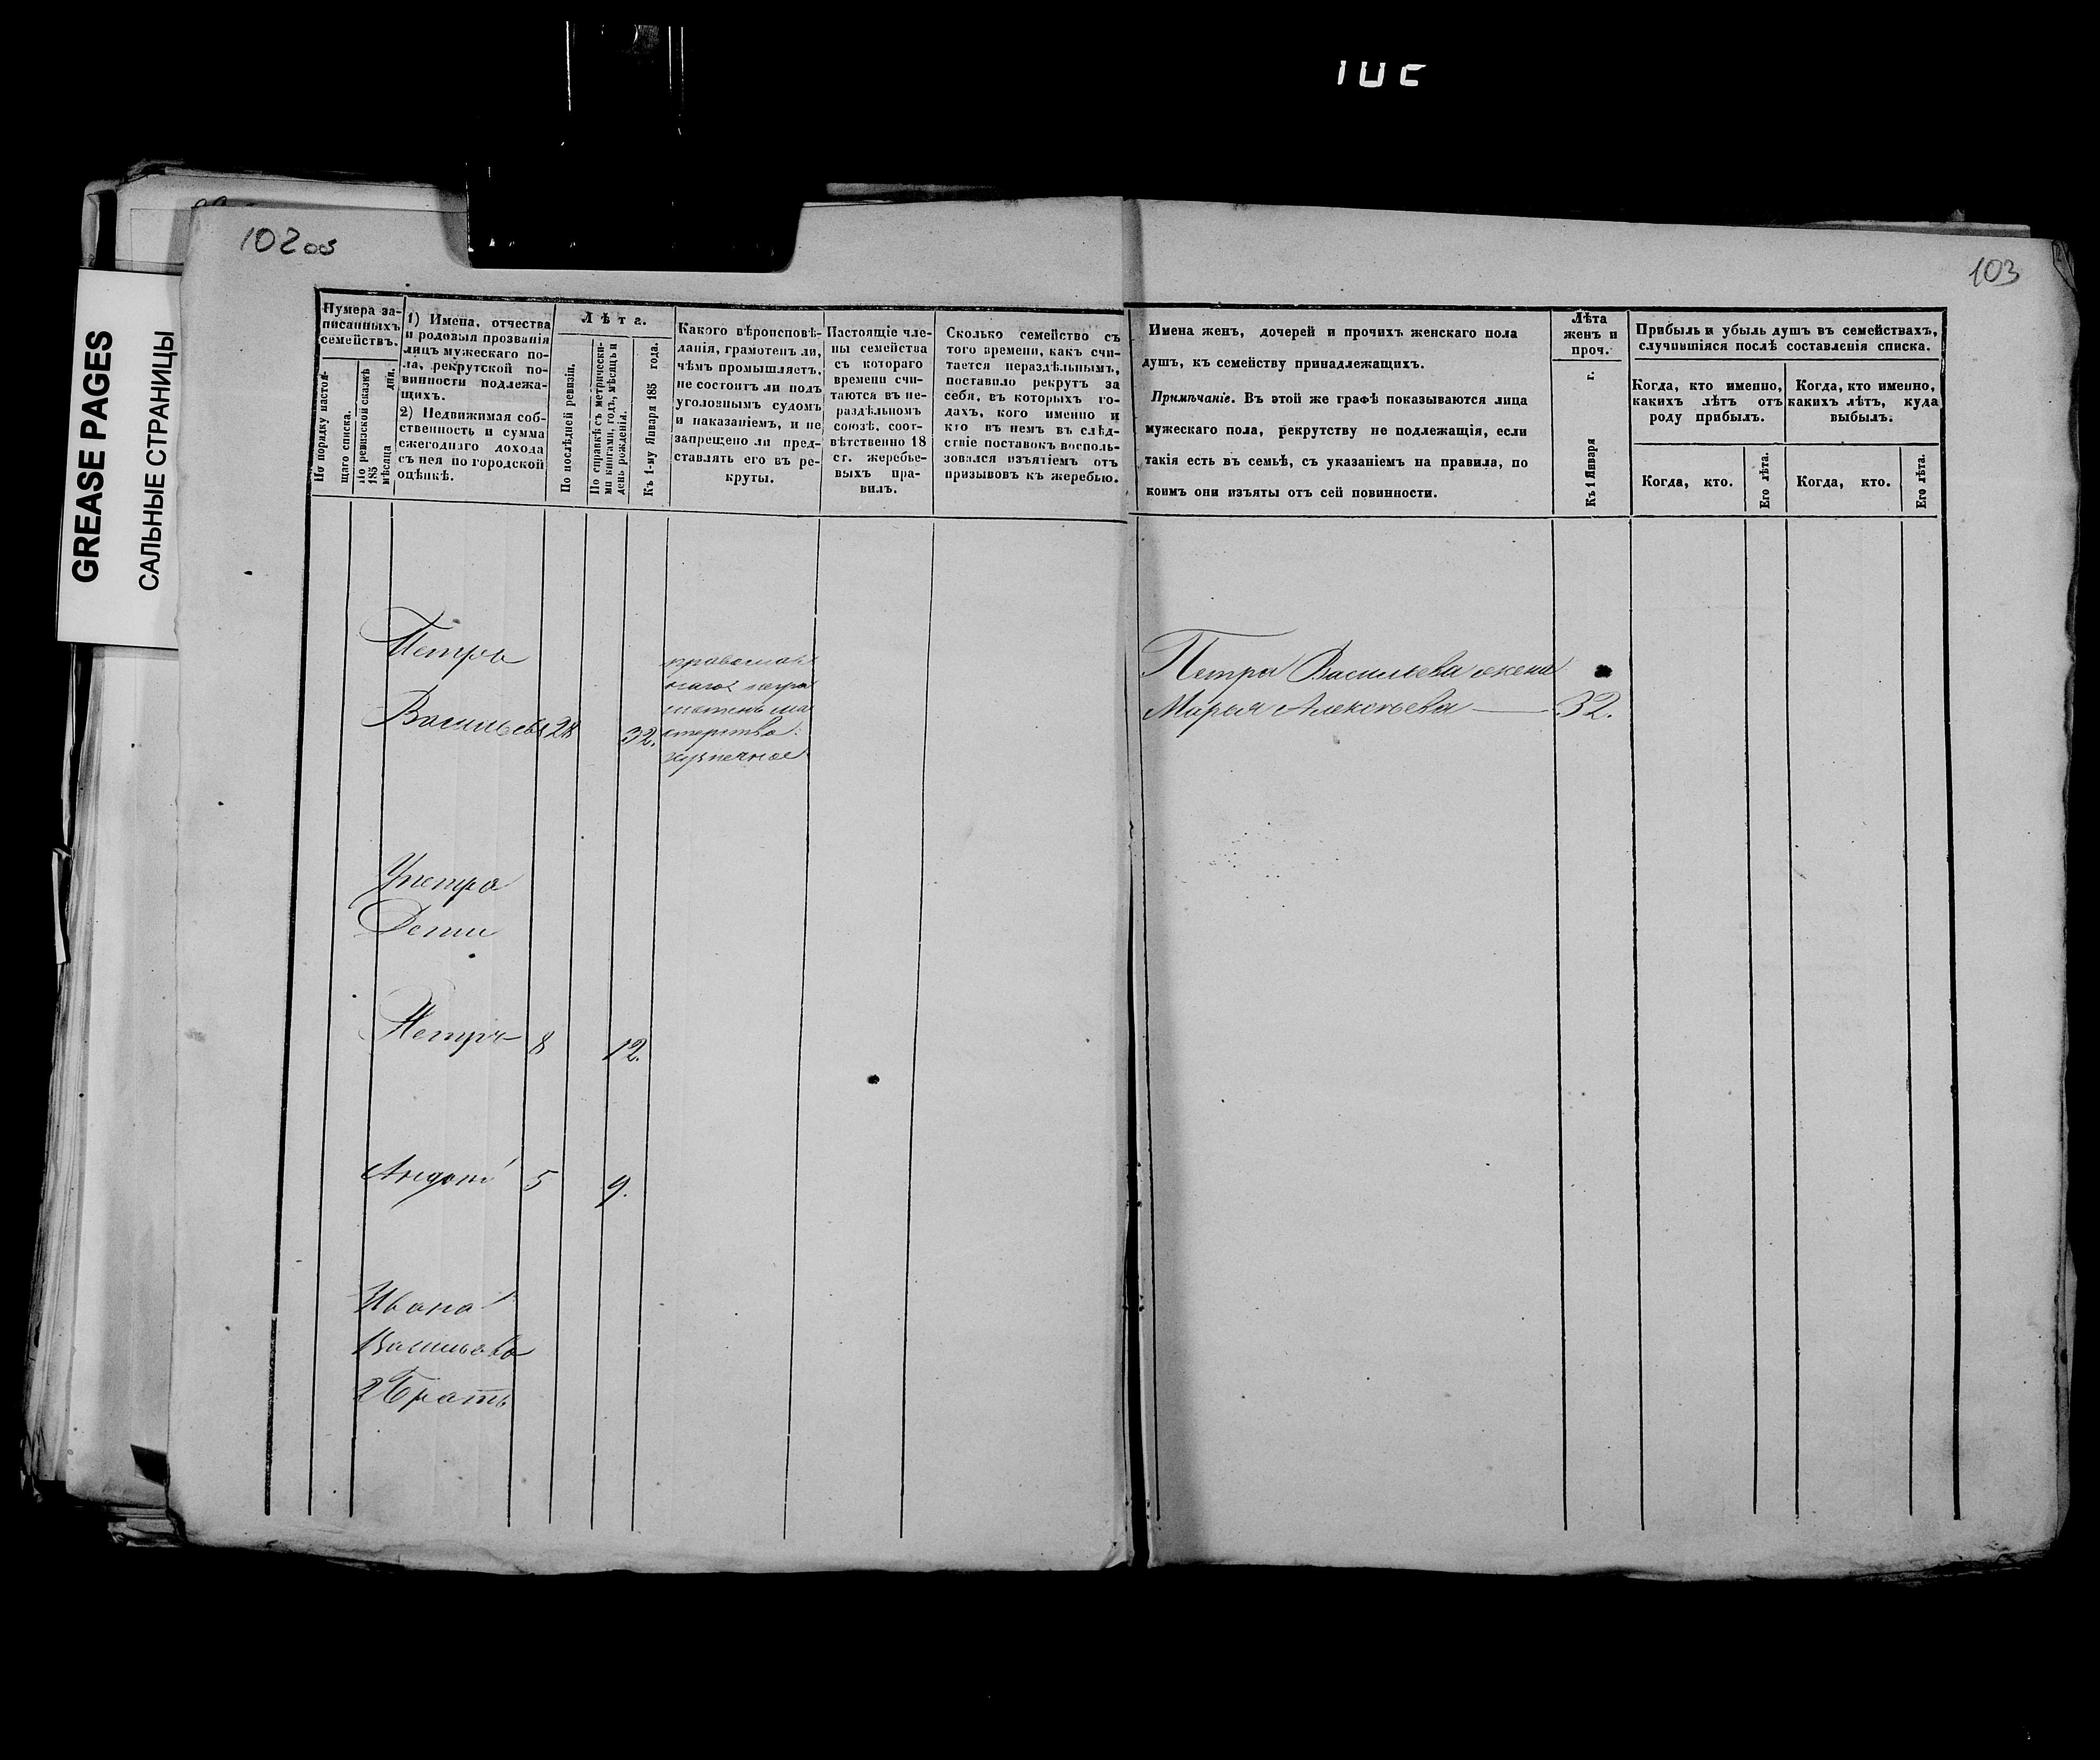 GREASE PAGES
САЛЬНЫЕ СТРАНИЦЫ
102об
103
Нумера за-
писанныхъ
семействъ.
По порядку настоя-
щаго списка.
По ревизской сказкѣ
185
мѣсяца дня.
1) Имена, отчества
и родовыя прозванія
лицъ мужескаго по-
ла, рекрутской по-
винности подлежа-
щихъ.
2) Недвижимая соб-
ственность и сумма
ежегоднаго дохода
съ нея по городской
оцѣнкѣ.
Лѣта.
По послѣдней ревизіи.
По справкѣ съ метрически-
ми книгами, годъ, мѣсяцъ и
день рожденія.
Къ 1-му Января 185 года.
Какого вѣроисповѣ-
данія, грамотенъ ли,
чѣмъ промышляетъ,
не состоитъ ли подъ
уголовнымъ судомъ
и наказаніемъ, и не
запрещено ли пред-
ставлять его въ ре-
круты.
Настоящіе чле-
ны семейства
съ котораго
времени счи-
таются въ не-
раздѣльномъ
союзѣ, соот-
вѣтственно 18
ст. жеребье-
выхъ пра-
вилъ.
Сколько семейство съ
того времени, какъ счи-
тается нераздѣльнымъ,
поставило рекрутъ за
себя, въ которыхъ го-
дахъ, кого именно и
кто въ немъ въ слѣд-
ствіе поставокъ восполь-
зовался изъятіемъ отъ
призывовъ къ жеребью.
Имена женъ, дочерей и прочихъ женскаго пола
душъ, къ семейству принадлежащихъ.
Примѣчаніе. Въ этой же графѣ показываются лица
мужескаго пола, рекрутству не подлежащія, если
такія есть въ семьѣ, съ указаніемъ на правила, по
коимъ они изъяты отъ сей повинности.
Лѣта
женъ и
проч.
Къ 1 Января г.
Прибыль и убыль душъ въ семействахъ,
случившіяся послѣ составленія списка.
Когда, кто именно,
какихъ лѣтъ отъ
роду прибылъ.
Когда, кто именно,
какихъ лѣтъ, куда
выбылъ.
Когда, кто.
Его лѣта.
Когда, кто.
Его лѣта.
Петръ
Васильевъ 28 32.
православ
наго негра
мотенъ ма
стерство
кузнечное
Петра Васильева жена
Марья Алексѣева 32.
У петра
Дети
Петръ 8 12.
Андрей 5 9.
Ивана
Васильева
2 Братъ